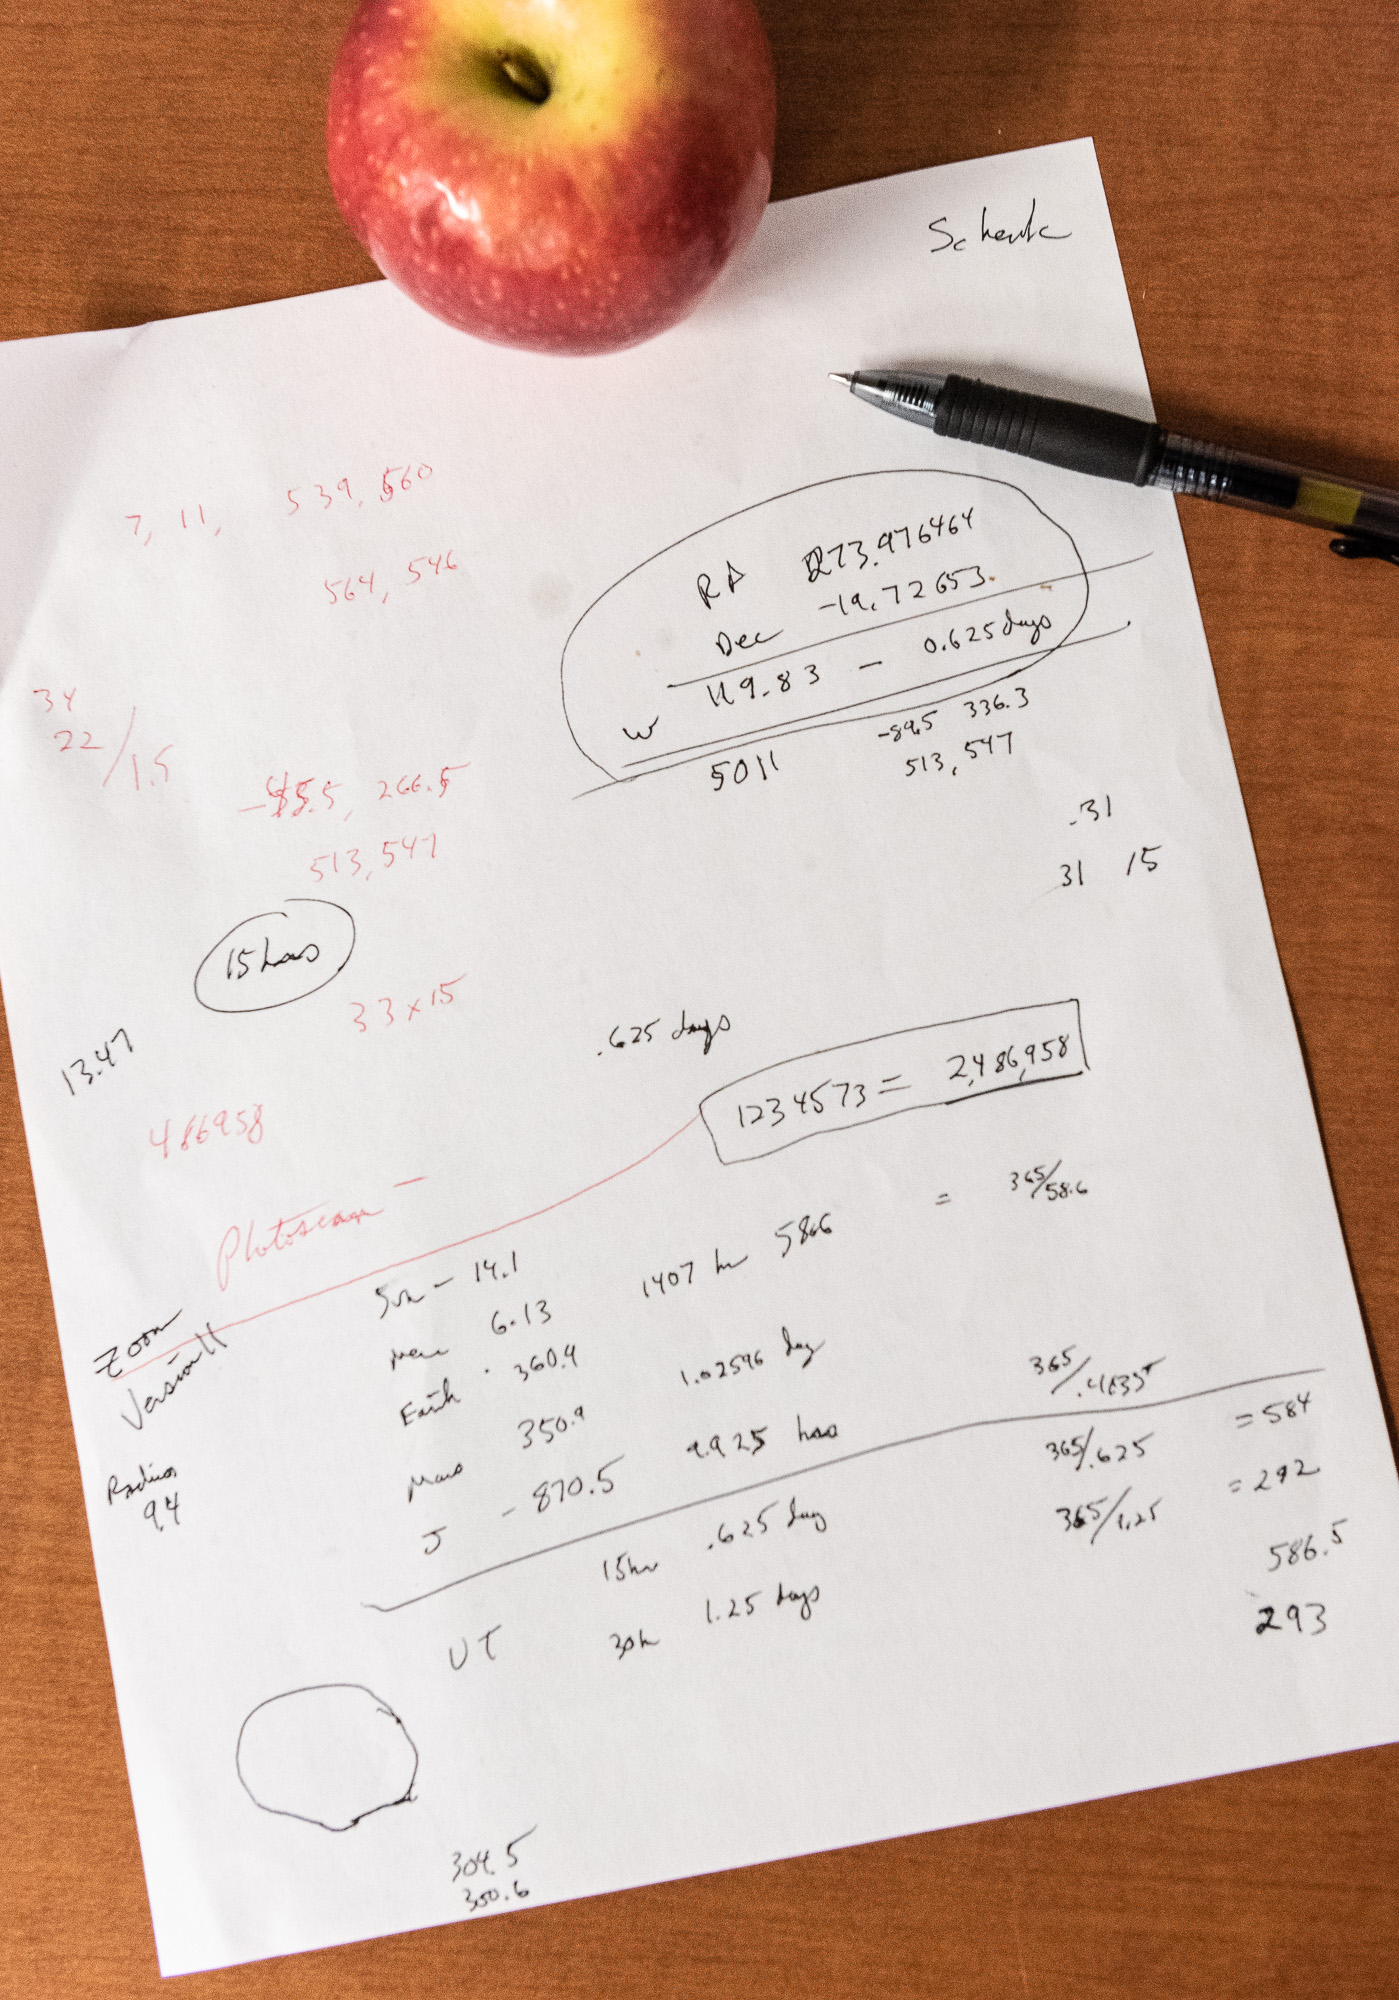 Schenk
7, 11, 539,560
564,546
RA 273.976464
Dec -19.72653
W 119.83 - 0.625 days
5011 -89.5 336.3
513,547
34
22/1.5
266.5
513,547
.31
31 15
15 hrs
33x15
13.47
.625 days
1234573 = 2,486,958
486958
Photoscan -
Zoom
Version 11
Sun - 14.1
Merc 6.13 1407 hr 58.6 = 365/58.6
Earth 360.9
Mars 350.9 1.02596 day
J - 870.5 9.925 hrs 365/
15hr .625 day 365/.625 = 584
UT 30h 1.25 days 365/1.25 = 292
586.5
293
Radius
94
304.5
300.6